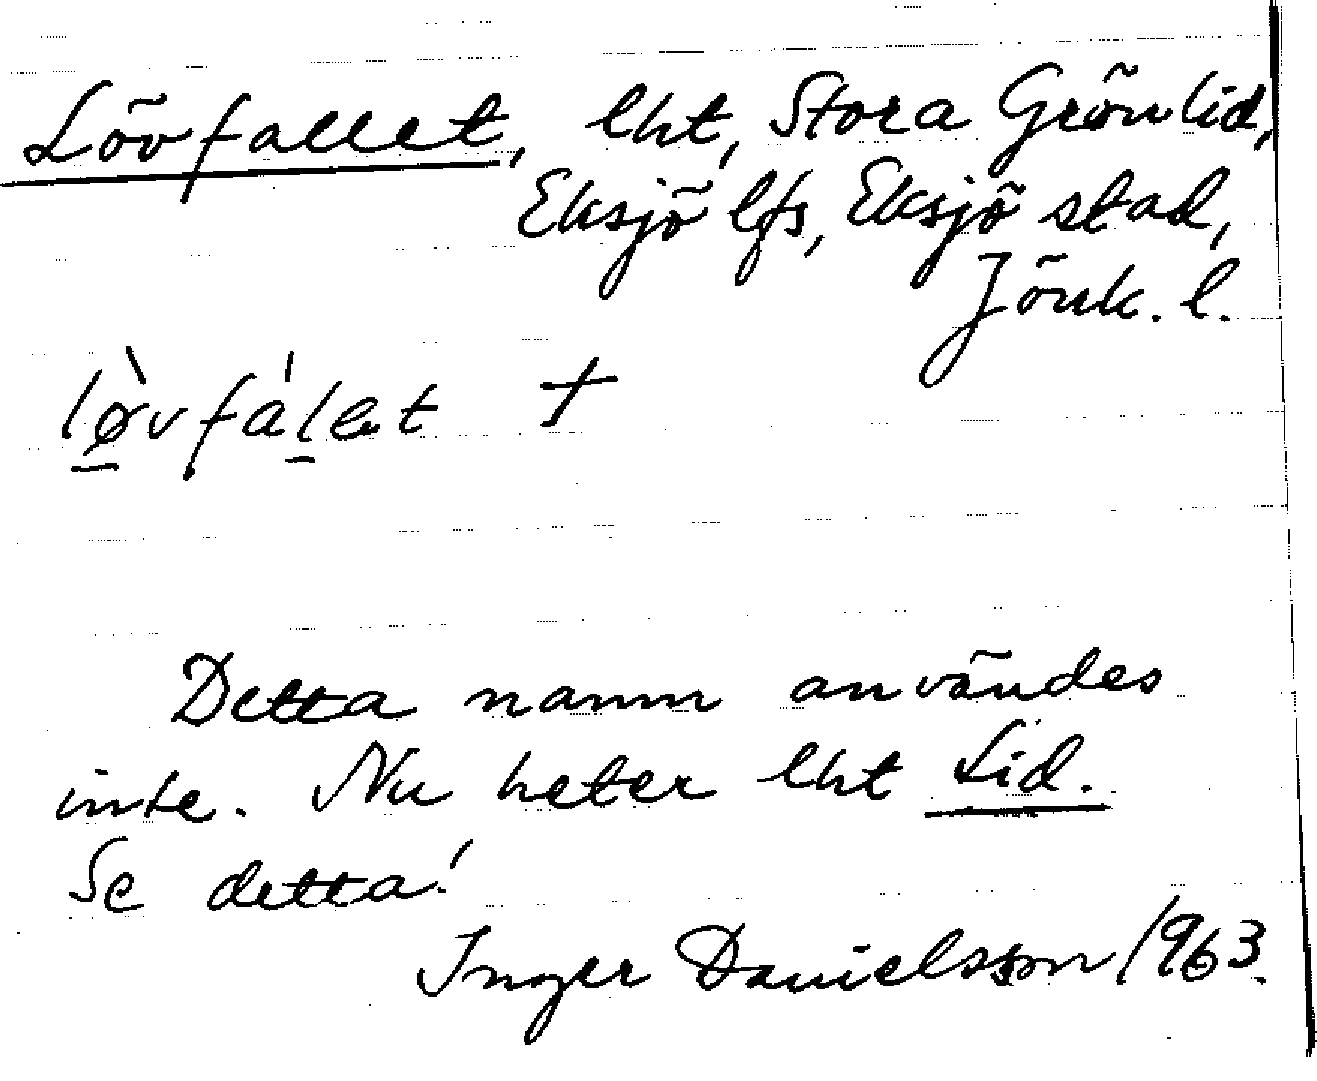 Lövfallet, lht, Stora Grönlid,
Eksjö lfs, Eksjö stad,
Jönk. l.
lø̀vfa̍let †
Detta namn användes
inte. Nu heter lht Lid.
Se detta!
Inger Danielsson 1963.